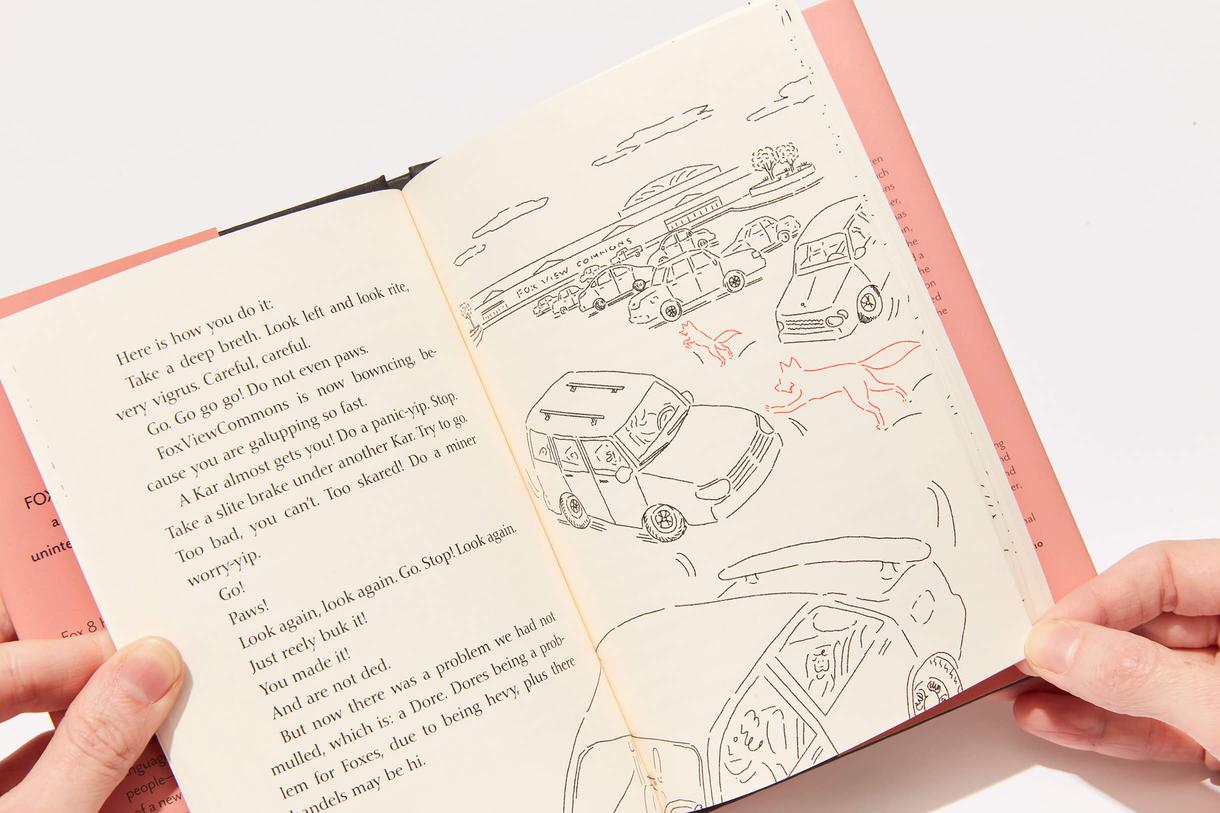 Here is how you do it:
Take a deep breth. Look left and look rite,
very vigrus. Careful, careful.
Go. Go go go! Do not even paws.
FoxViewCommons is now bowncing, be-
cause you are galupping so fast.
A Kar almost gets you! Do a panic-yip. Stop.
Take a slite brake under another Kar. Try to go.
Too bad, you can't. Too skared! Do a miner
worry-yip.
Go!
Paws!
Look again, look again. Go. Stop! Look again.
Just reely buk it!
You made it!
And are not ded.
But now there was a problem we had not
mulled, which is: a Dore. Dores being a prob-
lem for Foxes, due to being hevy, plus there
handels may be hi.
FOX VIEW COMMONS
FOX
a
uninte
Fox 8
people—
of a new